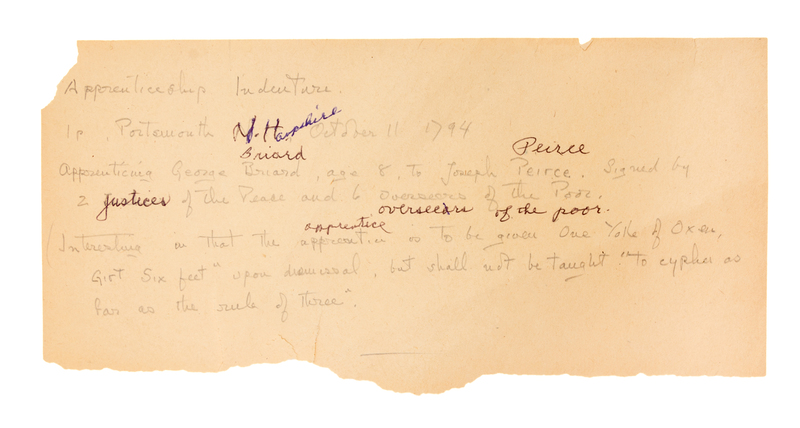 Apprenticeship Indenture.
1p. Portsmouth N. Hampshire October 11 1794
Briard
Peirce
Apprenticing George Briard, age 8, to Joseph Peirce. Signed by
2 Justices of the Pease and 6 overseers of the Poor.
overseers of the poor.
apprentice
(Interesting in that the is to be given One Yoke of Oxen,
Girt Six feet" upon dismissal, but shall not be taught "to cypher as
far as the rule of three".